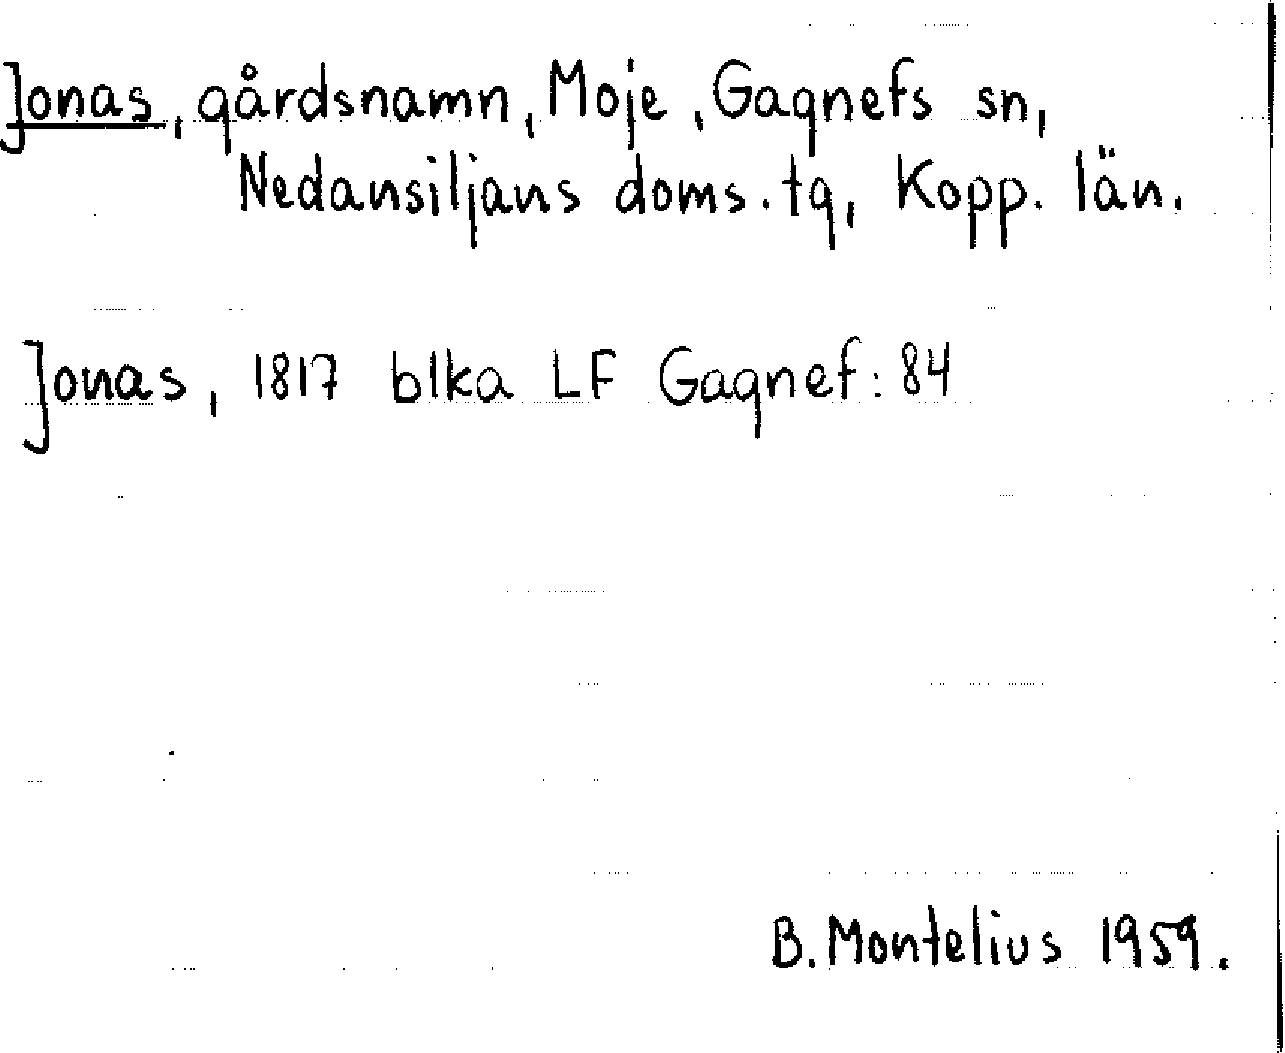 Jonas, gårdsnamn, Moje, Gagnefs sn,
Nedansiljans doms.tg, Kopp. län.
Jonas, 1817 blka LF Gagnef: 84
B. Montelius 1959.